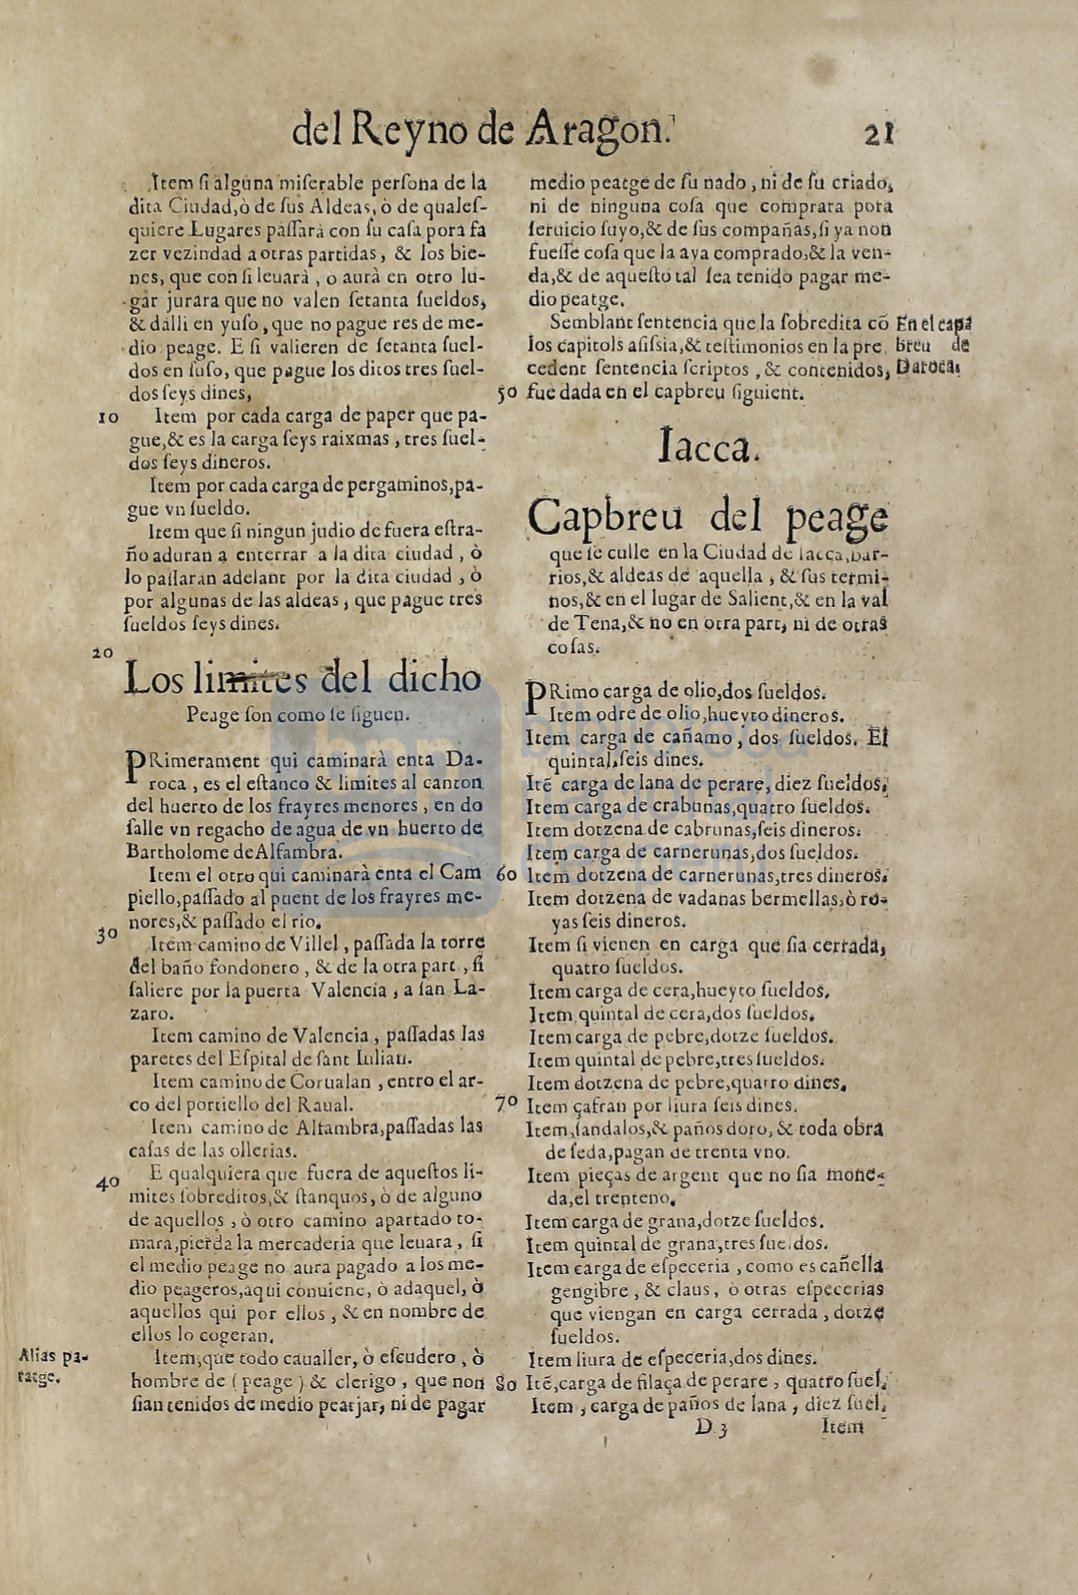 del Reyno de Aragon.
21
Item ſi alguna miſerable perſona de la
dita Ciudad,ò de ſus Aldeas, ò de qualeſ-
quiere Lugares paſſarà con ſu caſa pora fa
zer vezindad a otras partidas, & los bie-
nes, que con ſi leuarà , o aurà en otro lu-
gar jurara que no valen ſetanta ſueldos,
& dalli en yuſo, que no pague res de me-
dio peage. E ſi valieren de ſetanta ſuel-
dos en ſuſo, que pague los ditos tres ſuel-
dos ſeys dines,
10
Item por cada carga de paper que pa-
gue,& es la carga ſeys raixmas , tres ſuel-
dos ſeys dineros.
Item por cada carga de pergaminos,pa-
gue vn ſueldo.
Item que ſi ningun judio de fuera eſtra-
ño aduran a enterrar a la dita ciudad , ò
lo paſſaran adelant por la dita ciudad , ò
por algunas de las aldeas, que pague tres
ſueldos ſeys dines.
20
Los limites del dicho
Peage ſon como ſe ſiguen.
PRimerament qui caminarà enta Da-
roca , es el eſtanco & limites al canton
del huerto de los frayres menores , en do
ſalle vn regacho de agua de vn huerto de
Bartholome deAlfambra.
Item el otro qui caminarà enta el Cam
piello,paſſado al puent de los frayres me-
nores,& paſſado el rio.
30
Item camino de Villel , paſſada la torre
del baño fondonero , & de la otra part , ſi
ſaliere por la puerta Valencia , a ſan La-
zaro.
Item camino de Valencia , paſſadas las
paretes del Eſpital de ſant Iulian.
Item camino de Corualan , entro el ar-
co del portiello del Raual.
Item camino de Alfambra,paſſadas las
caſas de las ollerias.
40
E qualquiera que fuera de aqueſtos li-
mites ſobreditos,& ſtanquos, ò de alguno
de aquellos , ò otro camino apartado to-
mara,pierda la mercaderia que leuara , ſi
el medio peage no aura pagado a los me-
dio peageros,aqui conuiene, ò adaquel, ò
aquellos qui por ellos , & en nombre de
ellos lo cogeran.
Alias pa-
ratge.
Item,que todo caualler, ò eſcudero , ò
hombre de ( peage ) & clerigo , que non
ſian tenidos de medio peatjar, ni de pagar
medio peatge de ſu nado , ni de ſu criado,
ni de ninguna coſa que comprara pora
ſeruicio ſuyo,& de ſus compañas,ſi ya non
fueſſe coſa que la aya comprado,& la ven-
da,& de aqueſto tal ſea tenido pagar me-
dio peatge.
Semblant ſentencia que la ſobredita cõ
los capitols aſiſsia,& teſtimonios en la pre
cedent ſentencia ſcriptos , & contenidos,
50 fue dada en el capbreu ſiguient.
En el capa
breu de
Daroca.
Iacca.
Capbreu del peage
que ſe culle en la Ciudad de Iacca,bar-
rios,& aldeas de aquella , & ſus termi-
nos,& en el lugar de Salient,& en la val
de Tena,& no en otra part, ni de otras
coſas.
PRimo carga de olio,dos ſueldos.
Item odre de olio,hueyto dineros.
Item carga de cañamo , dos ſueldos. El
quintal,ſeis dines.
Itē carga de lana de perare, diez ſueldos,
Item carga de crabunas,quatro ſueldos.
Item dotzena de cabrunas,ſeis dineros.
Item carga de carnerunas,dos ſueldos.
60 Item dotzena de carnerunas,tres dineros.
Item dotzena de vadanas bermellas,ò ro-
yas ſeis dineros.
Item ſi vienen en carga que ſia cerrada,
quatro ſueldos.
Item carga de cera,hueyto ſueldos.
Item quintal de cera,dos ſueldos.
Item carga de pebre,dotze ſueldos.
Item quintal de pebre,tres ſueldos.
Item dotzena de pebre,quatro dines.
70 Item çafran por liura ſeis dines.
Item,ſandalos,& paños doro, & toda obra
de ſeda,pagan de trenta vno.
Item pieças de argent que no ſia mone-
da,el trenteno.
Item carga de grana,dotze ſueldos.
Item quintal de grana,tres ſueldos.
Item carga de eſpeceria , como es cañella
gengibre , & claus, ò otras eſpecerias
que viengan en carga cerrada , dotze
ſueldos.
Item liura de eſpeceria,dos dines.
80 Itē,carga de filaça de perare , quatro ſuel.
Item , carga de paños de lana , diez ſuel.
D 3
Item